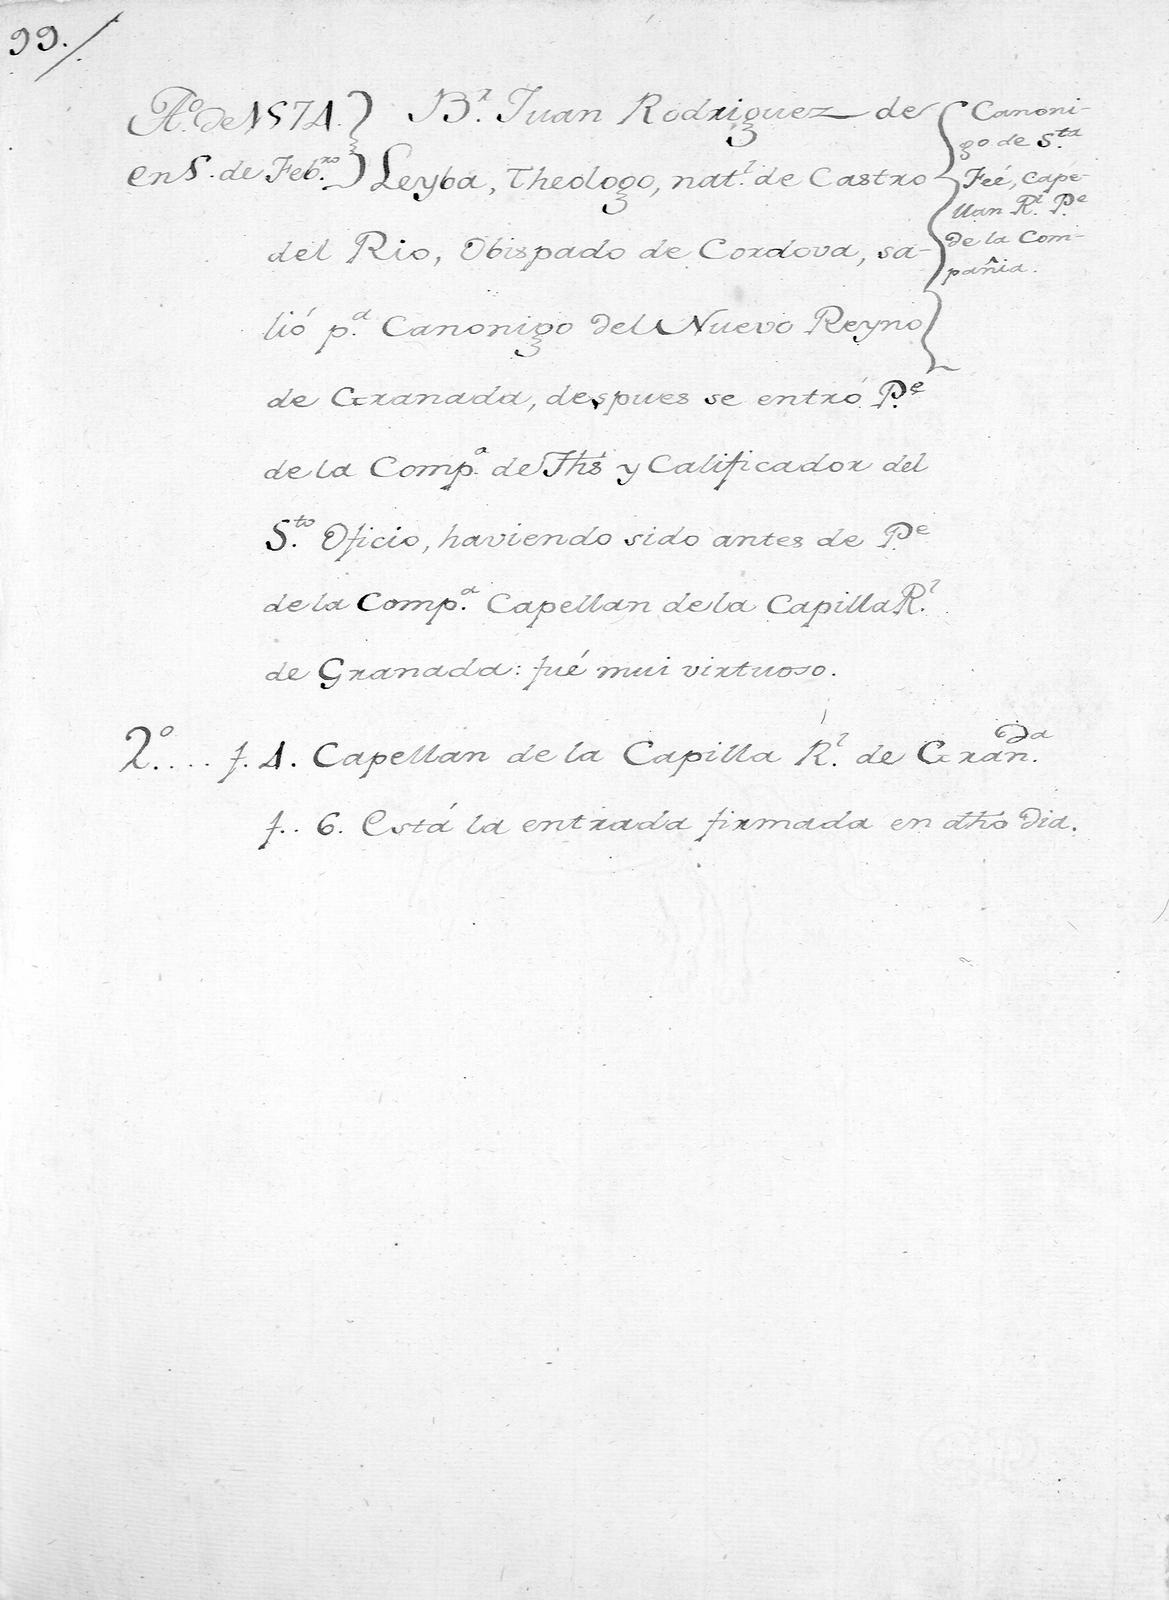 99./
A.º de 1574.
en 5. de Feb.ro
B.r Juan Rodriguez de
Leyba, Theologo, nat.l de Castro
del Rio, Obispado de Cordova, sa-
lió p.a Canonigo del Nuevo Reyno
de Granada, despues se entró P.e
de la Comp.a de Jhs y Calificador del
S.to Oficio, haviendo sido antes de P.e
de la Comp.a Capellan de la Capilla R.l
de Granada: fué mui virtuoso.
Canoni-
go de S.ta
Feé, Cape-
llan R.l P.e
de la Com-
pañia.
2º.... f. 4. Capellan de la Capilla R.l de Gran.da
f.. 6. Está la entrada firmada en dho dia.